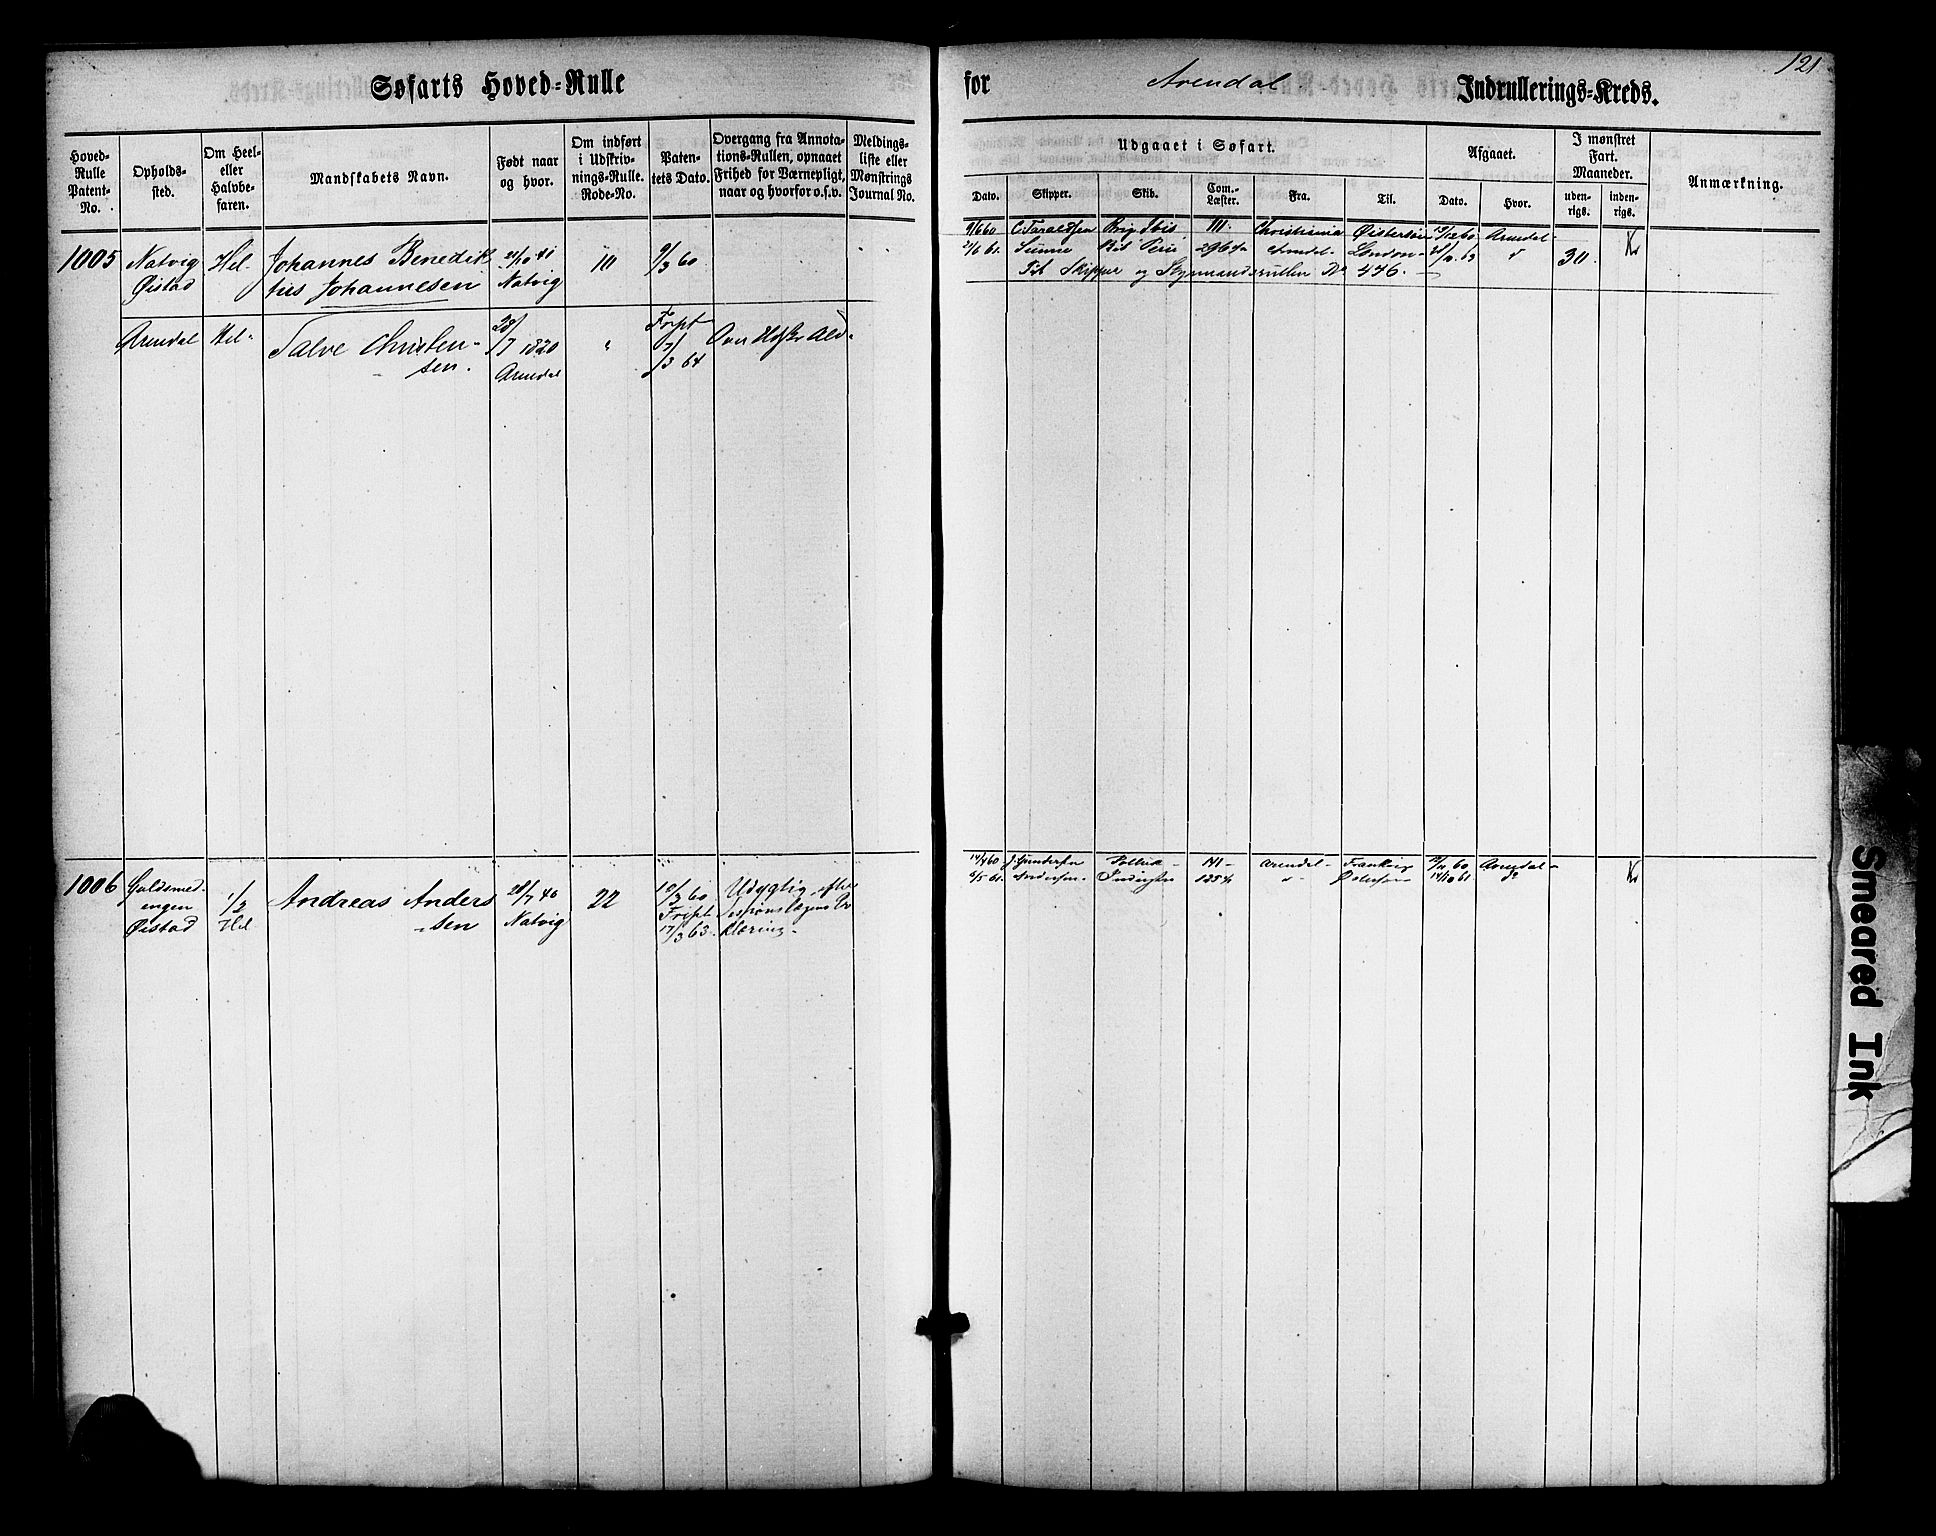 121
Søfarts Hoved-Rulle
for Arendal Indrullerings-Kreds.
Hoved-
Rulle
Patent-
No.
Opholds-
sted.
Om Heel-
eller
Halvbe-
faren.
Mandskabets Navn.
Født naar
og hvor.
Om indført
i Udskriv-
nings-Rulle.
Rode-No.
Paten-
tets Dato.
Overgang fra Annota-
tions-Rullen, opnaaet
Frihed for Værnepligt,
naar og hvorfor o.s.v.
Meldings-
liste eller
Mønstrings
Journal No.
Udgaaet i Søfart.
Dato.
Skipper.
Skib.
Com.-
Læster.
Fra.
Til.
Afgaaet.
Dato.
Hvor.
I mønstret
Fart.
Maaneder.
uden-
rigs.
inden-
rigs.
Anmærkning.
1005
Natvig
Øistad
Hel-
Johannes Benedik
tus Johannesen
21/10 41
Natvig
111
9/3 60
9/6 60 C. Taraldsen Brig Ibis 111. Christiania Østersøen 13/12 60 Arendal-
21/6 61. Bk Peru 296 Arendal- London- 30
Til Skipper og Styrmandsrullen No 446.-
Arendal
Hel-
Talve Christen-
sen.
28/7 1820
Arendal
"
Fript
7/3 64
Over
1006
Guldsmed-
engen
Øistad
1/2
Hel
Andreas Anders
sen
28/7 40
Natvig
22
10/3 60
Fript
17/3 63.
Udygtig efter
Sessionslægens Er
klæring-
14/4 60 J. Gundersen 141- Arendal- 60 Arendal-
6/5 61. Andersen- Industri 125 14/10 61. do
Smeared Ink